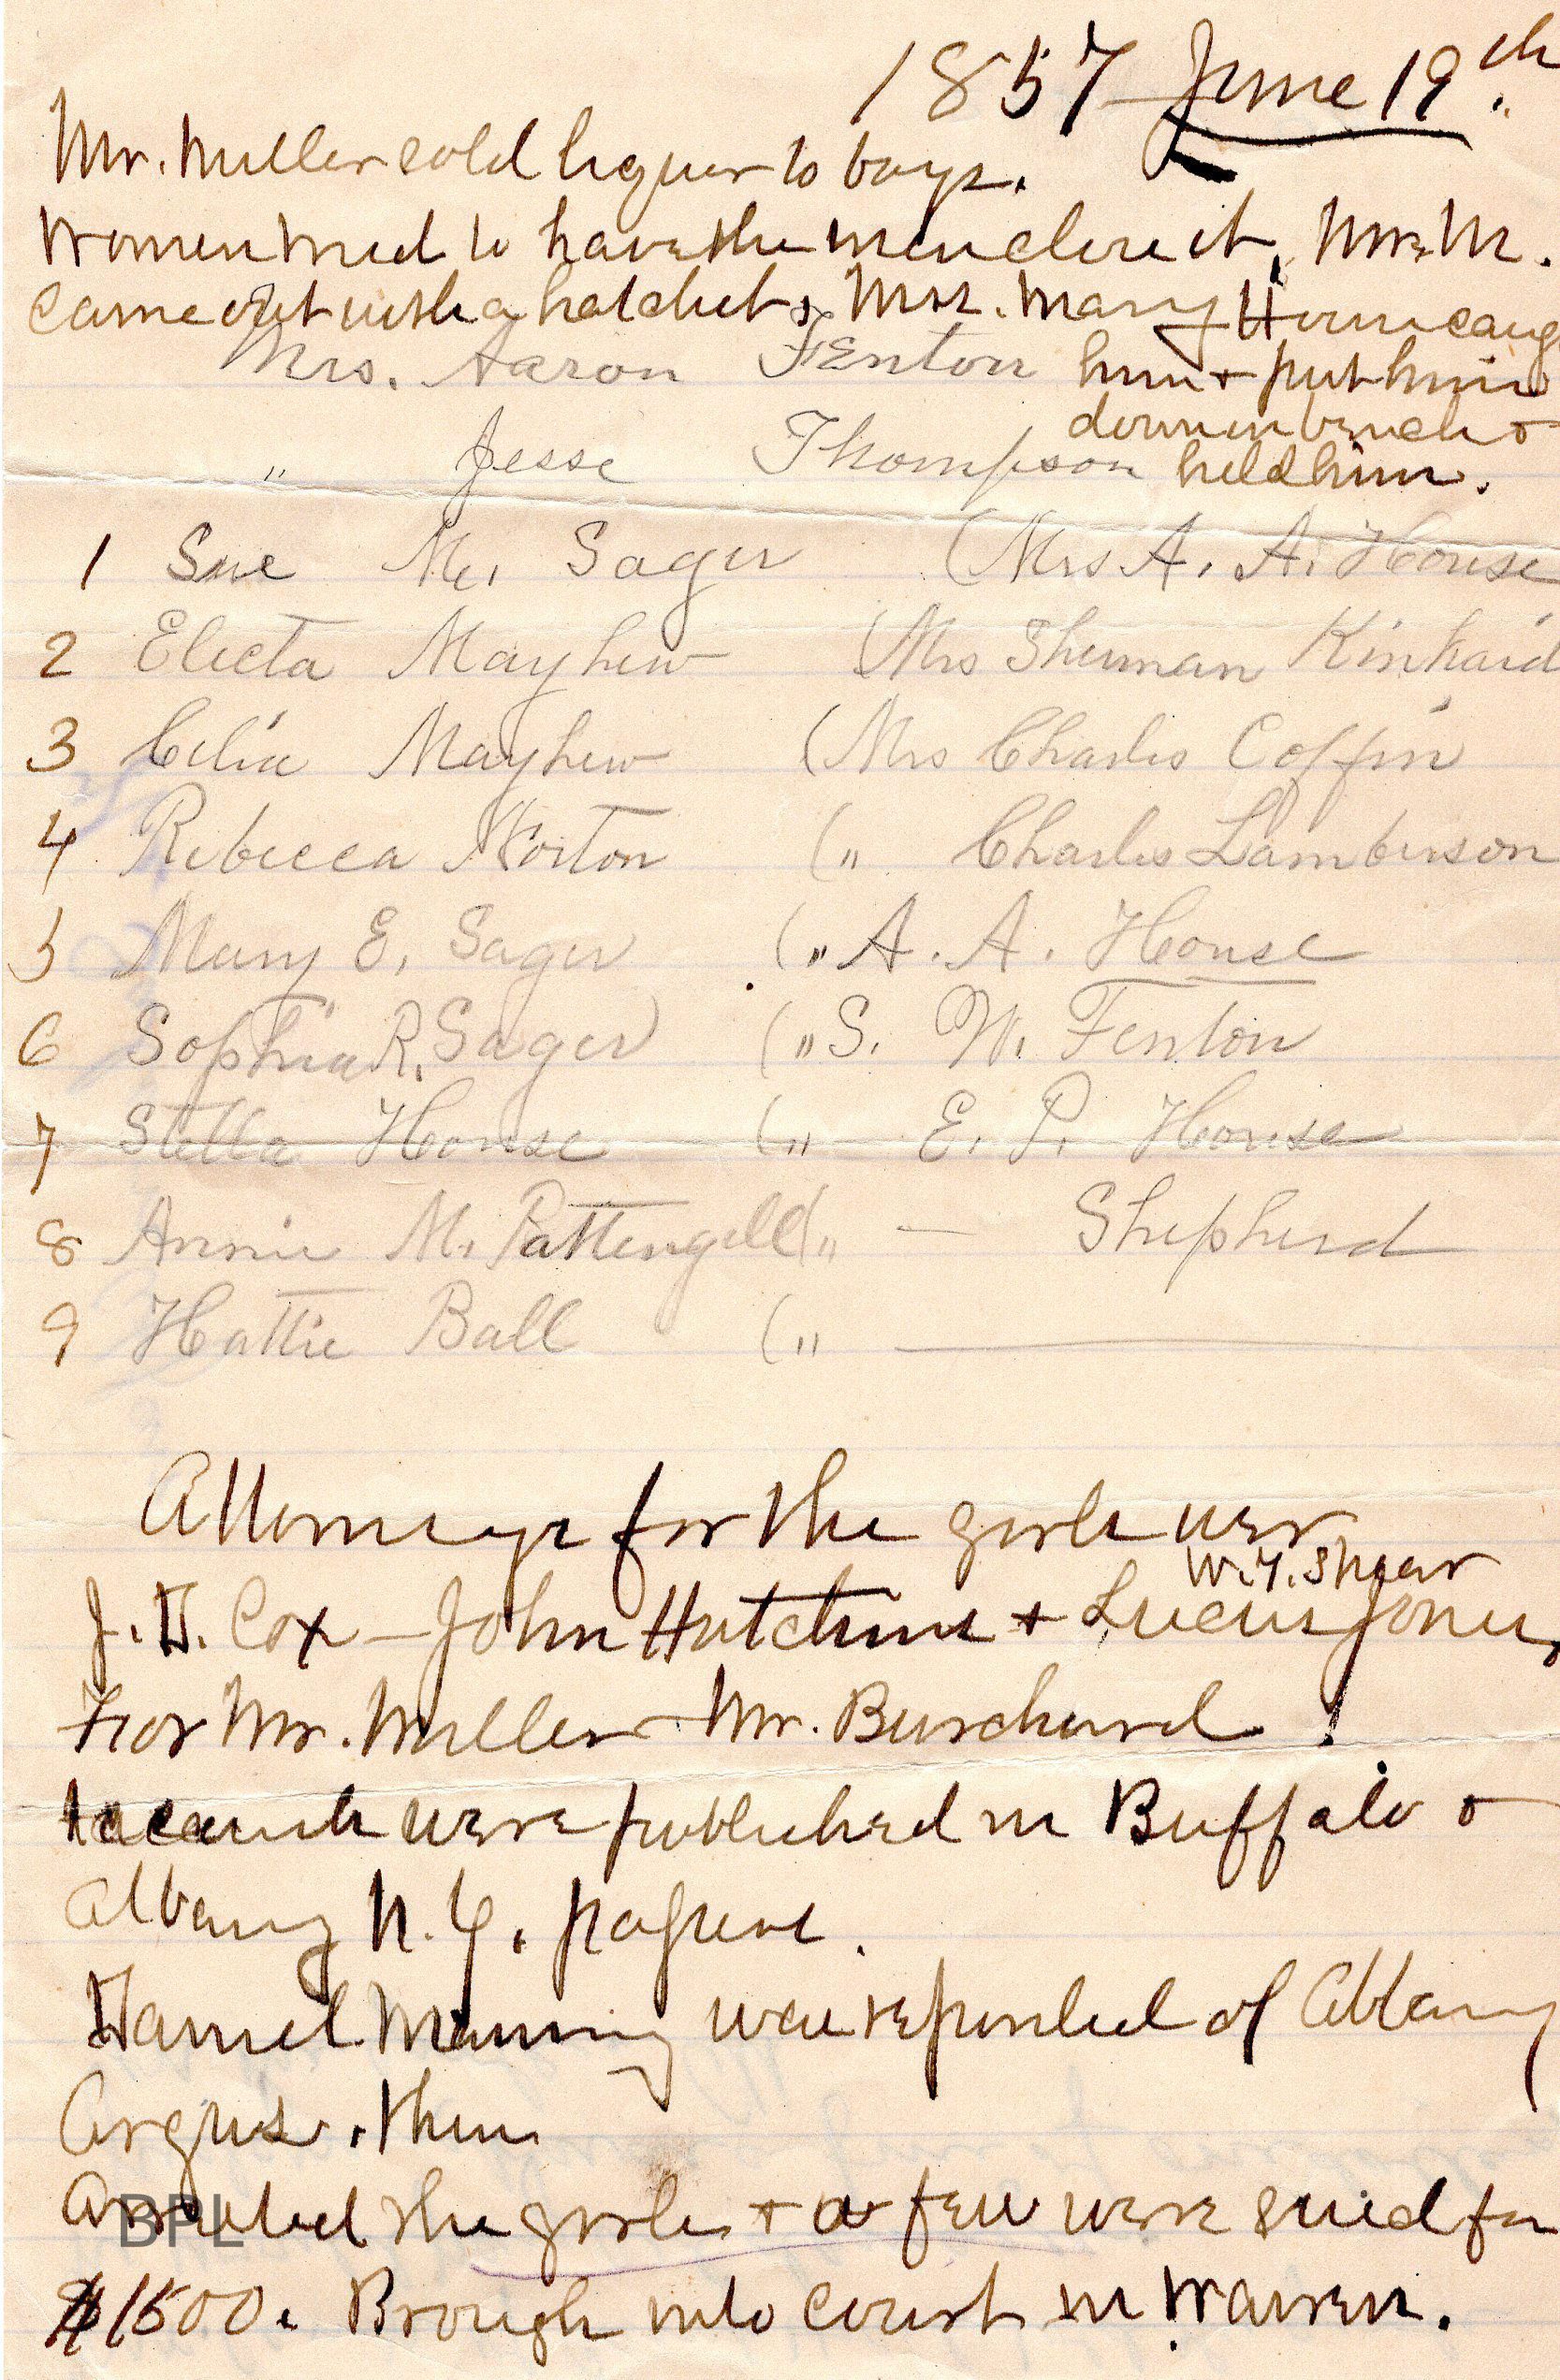 1857 June 19th.
Mr. Miller sold liquor to boys.
Women tried to have the men close it, Mr. M.
came out with a hatchet, Mrs. Mary Hurn caug
him + put him
down on bench +
held him.
Mrs. Aaron Fenton
" Jesse Thompson
1 Sue M. Sager (Mrs A. A. House
2 Electa Mayhew (Mrs Sherman Kinkaid
3 Celia Mayhew (Mrs Charles Coffin
4 Rebecca Norton (" Charles Lamberson
5 Mary E. Sager (" A. A. House
6 Sophia R. Sager (" S. W. Fenton
7 Stella House (" E. P. House
8 Annie M. Pattengell (" — Shepherd
9 Hattie Ball (" —
Attorneys for the girls wer
W. T. Spear
J. D. Cox – John Hutchins + Lucius Jones,
For Mr. Miller – Mr. Burchard.
were published in Buffalo +
Albany N. Y. papers.
Daniel Manning was reporter of Albany
Argus. then
Arrested the girls + a few were sued for
$1500. Brough into court in Warren.
BPL